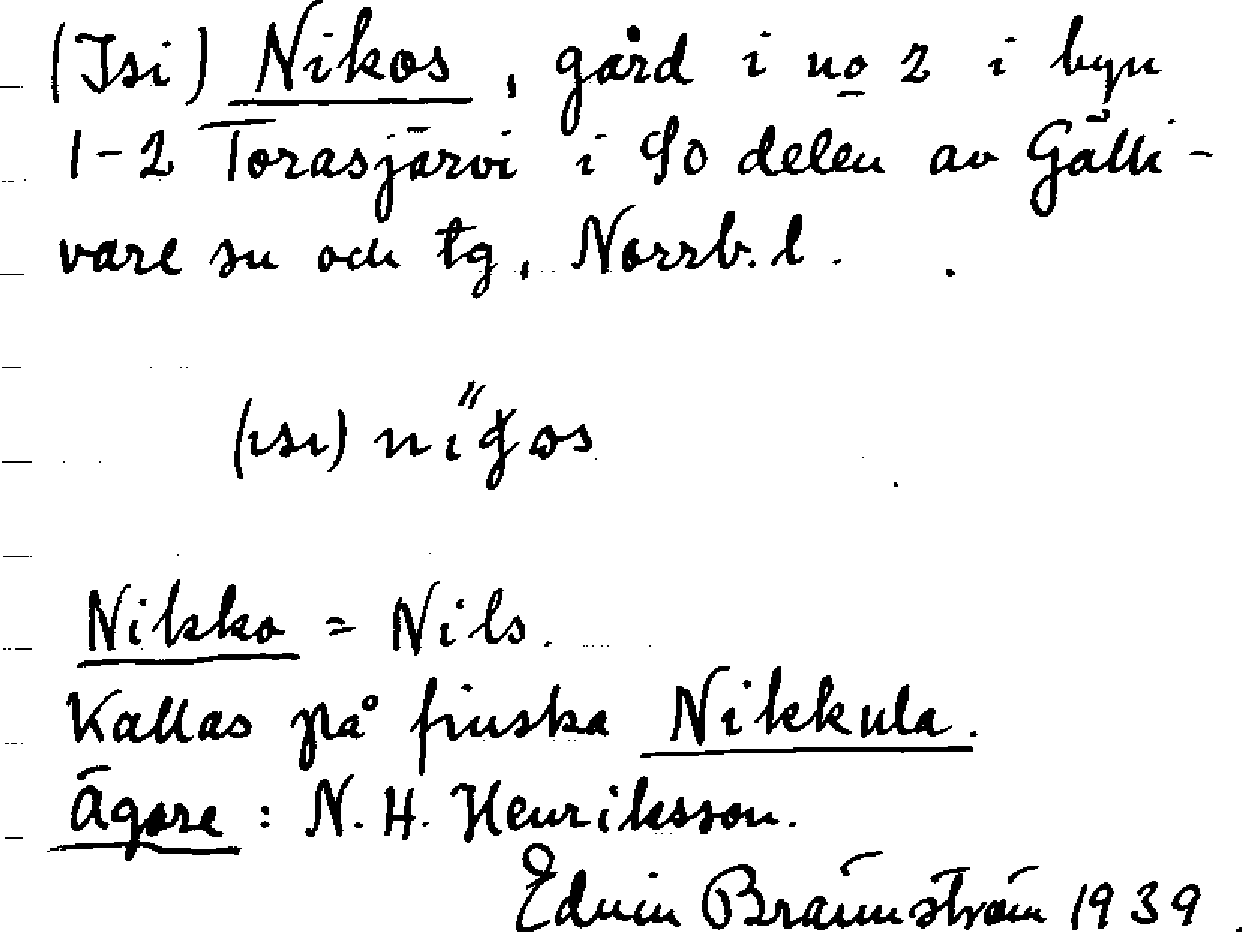 (Isi) Nikos, gård i no 2 i byn
1-2 Torasjärvi i So delen av Gälli-
vare sn och tg, Norrb. l.
(ısı) nı̋ǥos
Nikko = Nils.
Kallas på finska Nikkula.
Ägare: N. H. Henriksson.
Edvin Brännström 1939.